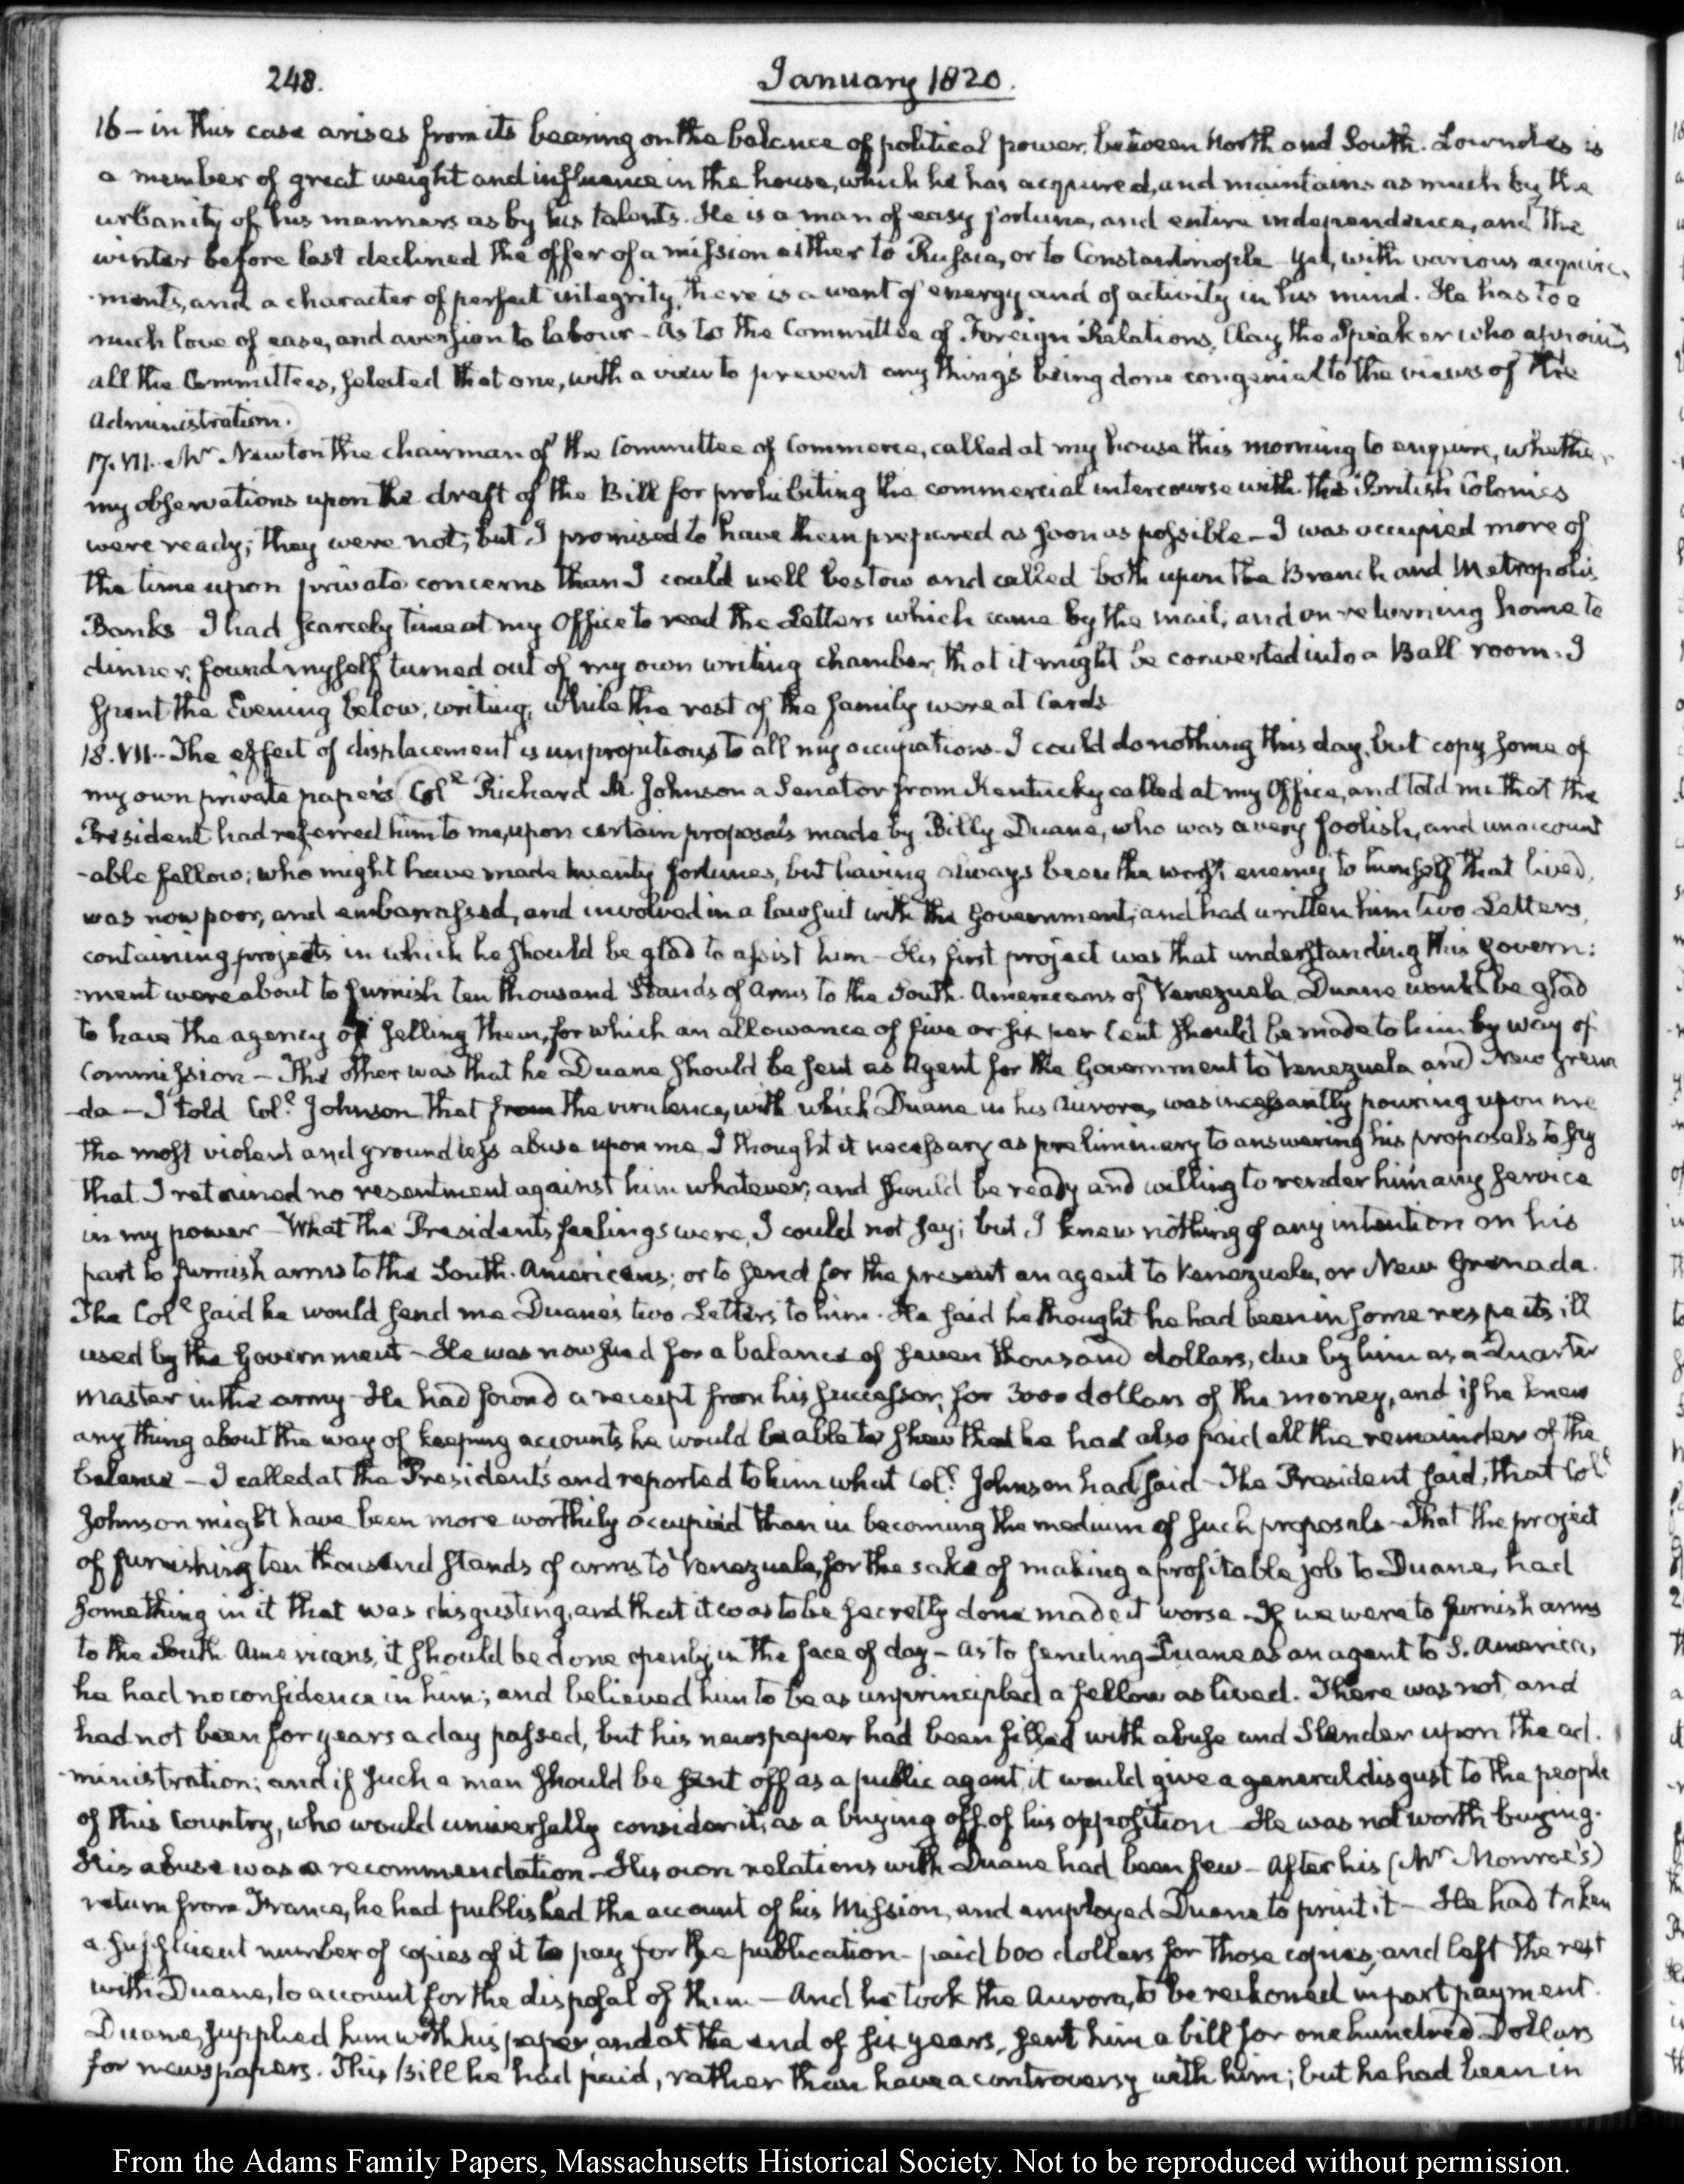 248.
January 1820.
16 – in this case arises from its bearing on the balance of political power, between North and South. Lowndes is
a member of great weight and influence in the house, which he has acquired, and maintains as much by the
urbanity of his manners as by his talents. He is a man of easy fortune, and entire independence, and the
winter before last declined the offer of a mission either to Russia, or to Constantinople – Yet, with various acquire-
-ments, and a character of perfect integrity, there is a want of energy and of activity in his mind. He has too
much love of ease, and aversion to labour – As to the Committee of Foreign Relations, Clay, the Speaker who appoints
all the Committees, selected that one, with a view to prevent any thing's being done congenial to the views of the
Administration.
17. VII. Mr Newton the chairman of the Committee of Commerce, called at my house this morning to enquire, whether
my observations upon the draft of the Bill for prohibiting the commercial intercourse with the British Colonies
were ready; they were not; but I promised to have them prepared as soon as possible – I was occupied more of
the time upon private concerns than I could well bestow and called both upon the Branch and Metropolis
Banks – I had scarcely time at my Office to read the Letters which came by the mail; and on returning home to
dinner, found myself turned out of my own writing chamber, that it might be converted into a Ball room. I
spent the Evening below, writing, while the rest of the family were at Cards.
18. VII. The effect of displacement is unpropitious to all my occupations. I could do nothing this day, but copy some of
my own private papers. Coll Richard M. Johnson a Senator from Kentucky called at my Office, and told me that the
President had referred him to me, upon certain proposals made by Billy Duane, who was a very foolish, and unaccount
-able fellow; who might have made twenty fortunes, but having always been the worst enemy to himself that lived,
was now poor, and embarrassed, and involved in a lawsuit with the Government; and had written him two Letters,
containing projects in which he should be glad to assist him – His first project was that understanding this Govern:
:ment were about to furnish ten thousand Stands of Arms to the South-Americans of Venezuela, Duane would be glad
to have the agency of selling them, for which an allowance of five or six per Cent should be made to him by way of
Commission – The other was that he Duane should be sent as Agent for the Government to Venezuela and New Grena
-da – I told Coll Johnson that from the virulence, with which Duane in his Aurora, was incessantly pouring upon me
the most violent and groundless abuse upon me, I thought it necessary as preliminary to answering his proposals to say
that I retained no resentment against him whatever; and should be ready and willing to render him any service
in my power – What the President's feelings were, I could not say; but I knew nothing of any intention on his
part to furnish arms to the South-Americans; or to send for the present an agent to Venezuela, or New Grenada.
The Coll said he would send me Duane's two Letters to him. He said he thought he had been in some respects ill
used by the Government – He was now sued for a balance of seven thousand dollars, due by him as a Quarter
master in the army – He had found a receipt from his successor, for 3000 dollars of the money, and if he knew
any thing about the way of keeping accounts he would be able to shew that he had also paid all the remainder of the
balance – I called at the President's and reported to him what Coll Johnson had said – The President said, that Coll
Johnson might have been more worthily occupied than in becoming the medium of such proposals – That the project
of furnishing ten thousand stands of arms to Venezuela, for the sake of making a profitable job to Duane, had
something in it that was disgusting, and that it was to be secretly done made it worse – If we were to furnish arms
to the South Americans, it should be done openly in the face of day – As to sending Duane as an agent to S. America,
he had no confidence in him; and believed him to be as unprincipled a fellow as lived. There was not, and
had not been for years a day passed, but his newspaper had been filled with abuse and Slander upon the ad-
-ministration; and if such a man should be sent off as a public agent, it would give a general disgust to the people
of this Country, who would universally consider it, as a buying off of his opposition – He was not worth buying.
His abuse was a recommendation – His own relations with Duane had been few – After his (Mr Monroe's)
return from France, he had published the account of his Mission, and employed Duane to print it – He had taken
a sufficient number of copies of it to pay for the publication – paid 600 dollars for those copies, and left the rest
with Duane, to account for the disposal of them – And he took the Aurora, to be reckoned in part payment.
Duane, supplied him with his paper, and at the end of six years, sent him a bill for one hundred Dollars
for newspapers. This Bill he had paid, rather than have a controversy with him; but he had been in
From the Adams Family Papers, Massachusetts Historical Society. Not to be reproduced without permission.